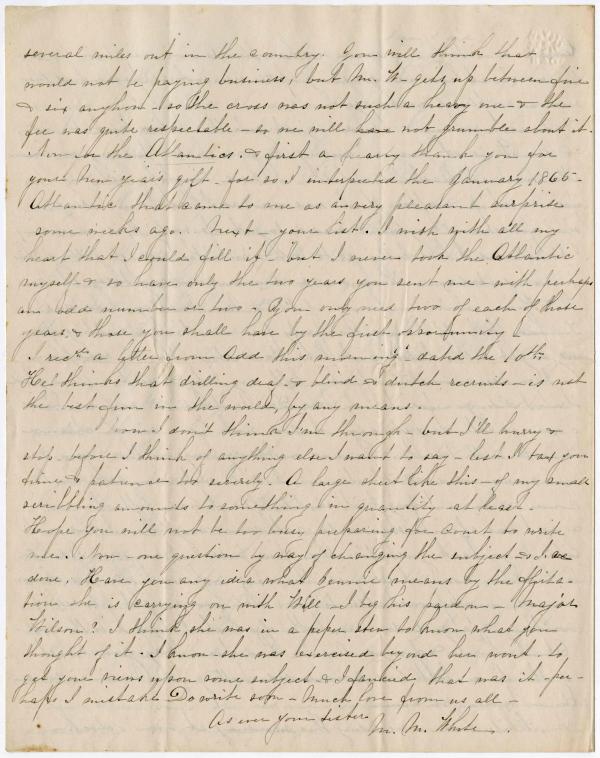 several miles out in the country. You will think that
would not be paying business, but Mr. W. gets up between five
& six anyhow - so the cross was not such a heavy one - & the
fee was quite respectable - so we will have not grumble about it.
Now for the Atlantics. & first a hearty thank you for
your New year's gift - for so I interpreted the January 1865 -
Atlantic that came to me as a very pleasant surprise
some weeks ago. Next - your list. I wish with all my
heart that I could fill it - but I never took the Atlantic
myself & so have only the two years you sent me - with perhaps
an odd number or two - You only need two of each of those
years, & those you shall have by the first opportunity -
I recd. a letter from Add this morning - dated the 10th.
He thinks that drilling deaf & blind & dutch recruits - is not
the best fun in the world, by any means.
Now I don't think I'm through - but I'll hurry &
stop before I think of anything else I want to say - lest I tax your
time & patience too severely. A large sheet like this - of my small
scribbling amounts to something in quantity - at least.
Hope you will not be too busy preparing for court to write
me. Now - one question by way of changing the subject & I
done. Have you any idea what Gennie means by the flirta-
tion she is carrying on with Will - I beg his pardon - Major
Wilson? I think she was in a stew to know what you
thought of it. I know she was exercised beyond her wont - to
get your views upon some subject & I fancied that was it - per-
haps I mistake Do write soon - Much love from us all -
As ever your sister
M. M. White.